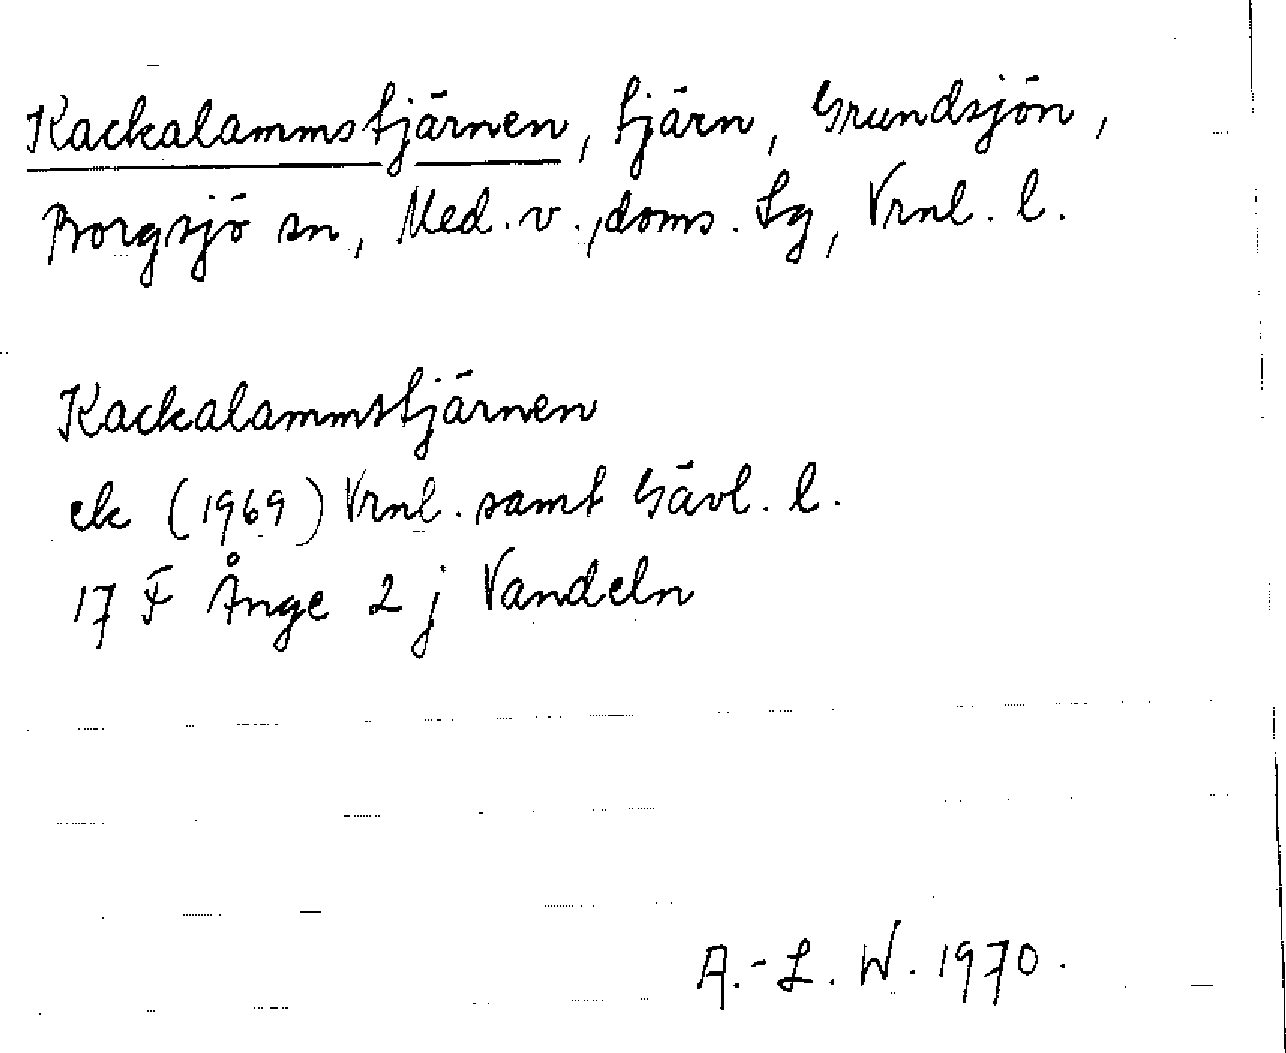 Kackalammstjärnen, tjärn, Grundsjön,
Borgsjö sn, Med. v., doms. Lg, Vrnl. l.
Kackalammstjärnen
ek (1969) Vrnl. samt Gävl. l.
17 F Ånge 2 j Vandeln
A.-L. W. 1970.